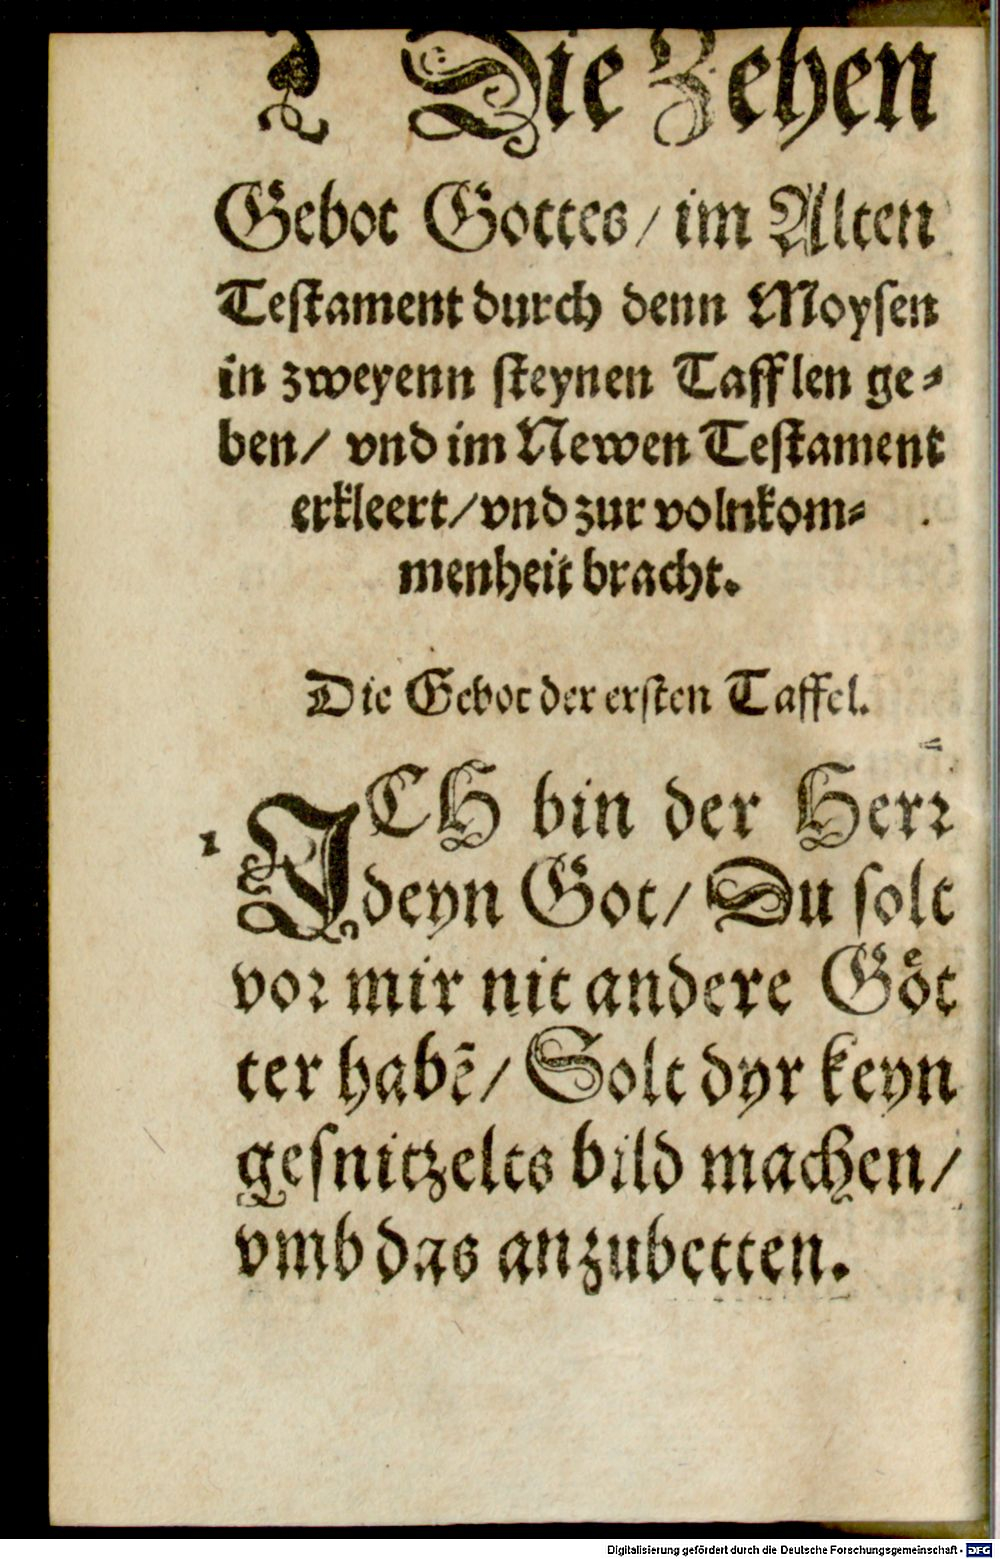 Die Zehen
Gebot Gottes/ im Alten
Testament durch denn Moysen
in zweyenn steynen Tafflen ge⸗
ben/ vnd im Newen Testament
erkleert/vnd zur volnkom⸗
menheit bracht.
Die Gebot der ersten Taffel.
1 ICH bin der Herr
deyn Got/ Du solt
vor mir nit andere Goͤt
ter habē/ Solt dyr keyn
gesnitzelts bild machen/
vmb das anzubetten.
Digitalisierung gefördert durch die Deutsche Forschungsgemeinschaft - DFG